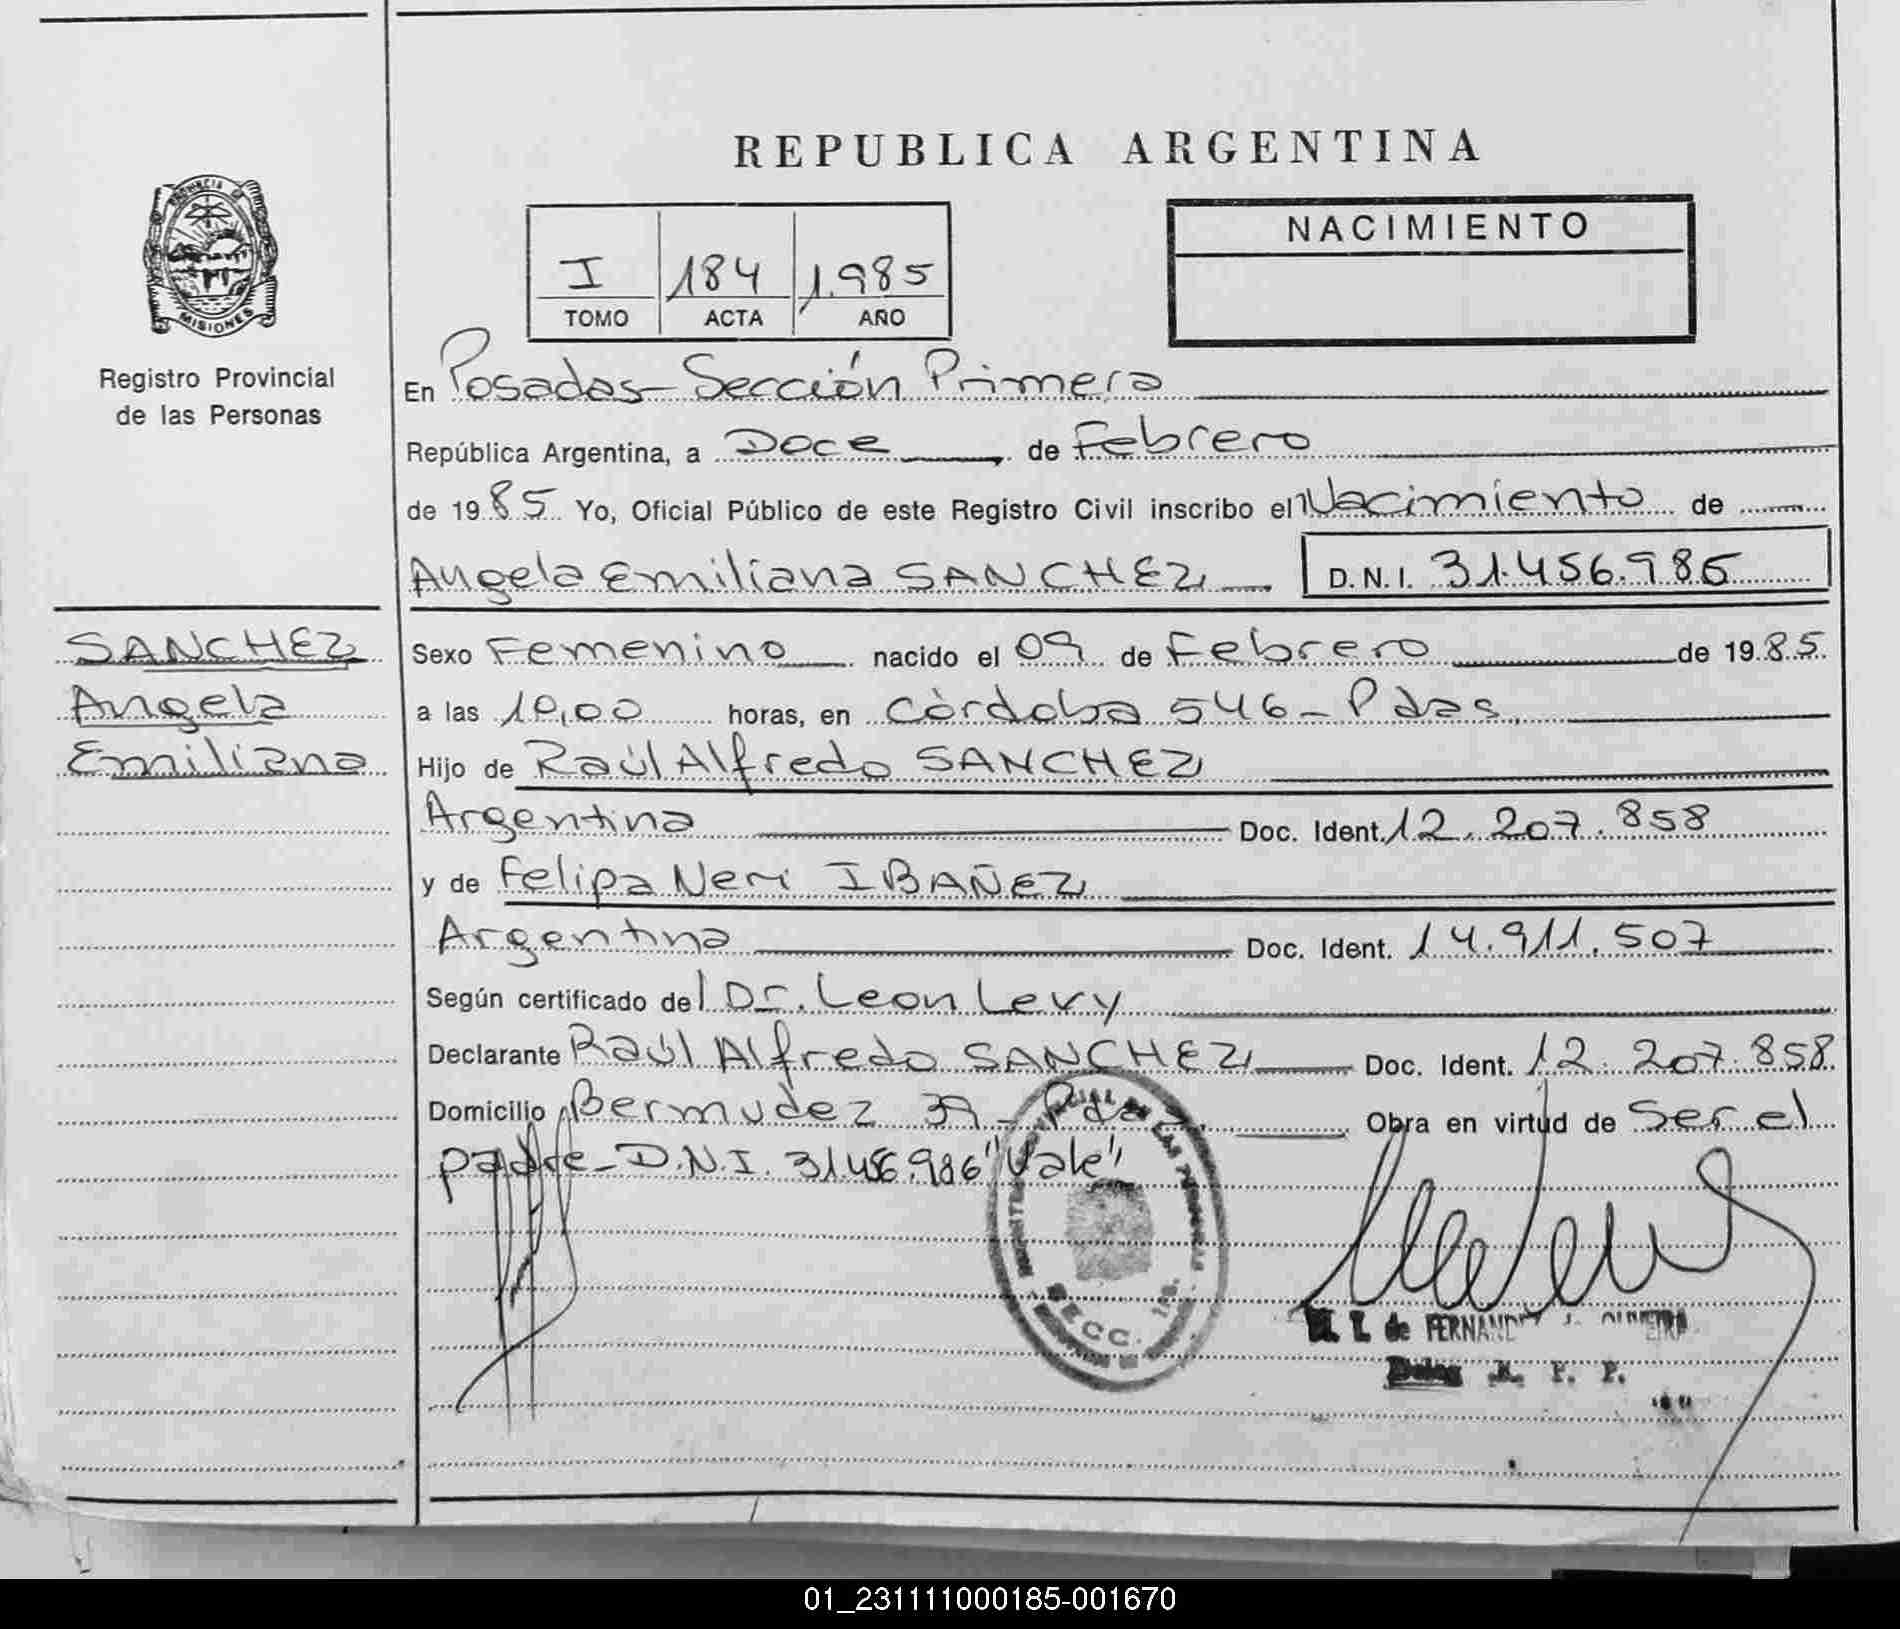 REPUBLICA ARGENTINA
PROVINCIA DE MISIONES
Registro Provincial
de las Personas
I 184 1.985
TOMO ACTA AÑO
NACIMIENTO
En Posadas - Sección Primera
República Argentina, a Doce de Febrero
de 1985 Yo, Oficial Público de este Registro Civil inscribo el Nacimiento de
Angela Emiliana SANCHEZ D.N.I. 31.456.986
SANCHEZ
Angela
Emiliana
Sexo Femenino nacido el 09 de Febrero de 1985.
a las 10,00 horas, en Córdoba 546 - Pdas.
Hijo de Raúl Alfredo SANCHEZ
Argentina Doc. Ident. 12.207.858
y de Felipa Neri IBAÑEZ
Argentina Doc. Ident. 14.911.507
Según certificado del Dr. Leon Levy
Declarante Raúl Alfredo SANCHEZ Doc. Ident. 12.207.858
Domicilio Bermudez 39 - Pdas. Obra en virtud de Ser el
padre - D.N.I. 31.456.986 "Vale"
SECC. 1ra.
M. I. de FERNANDEZ
R. P. P.
01_231111000185-001670